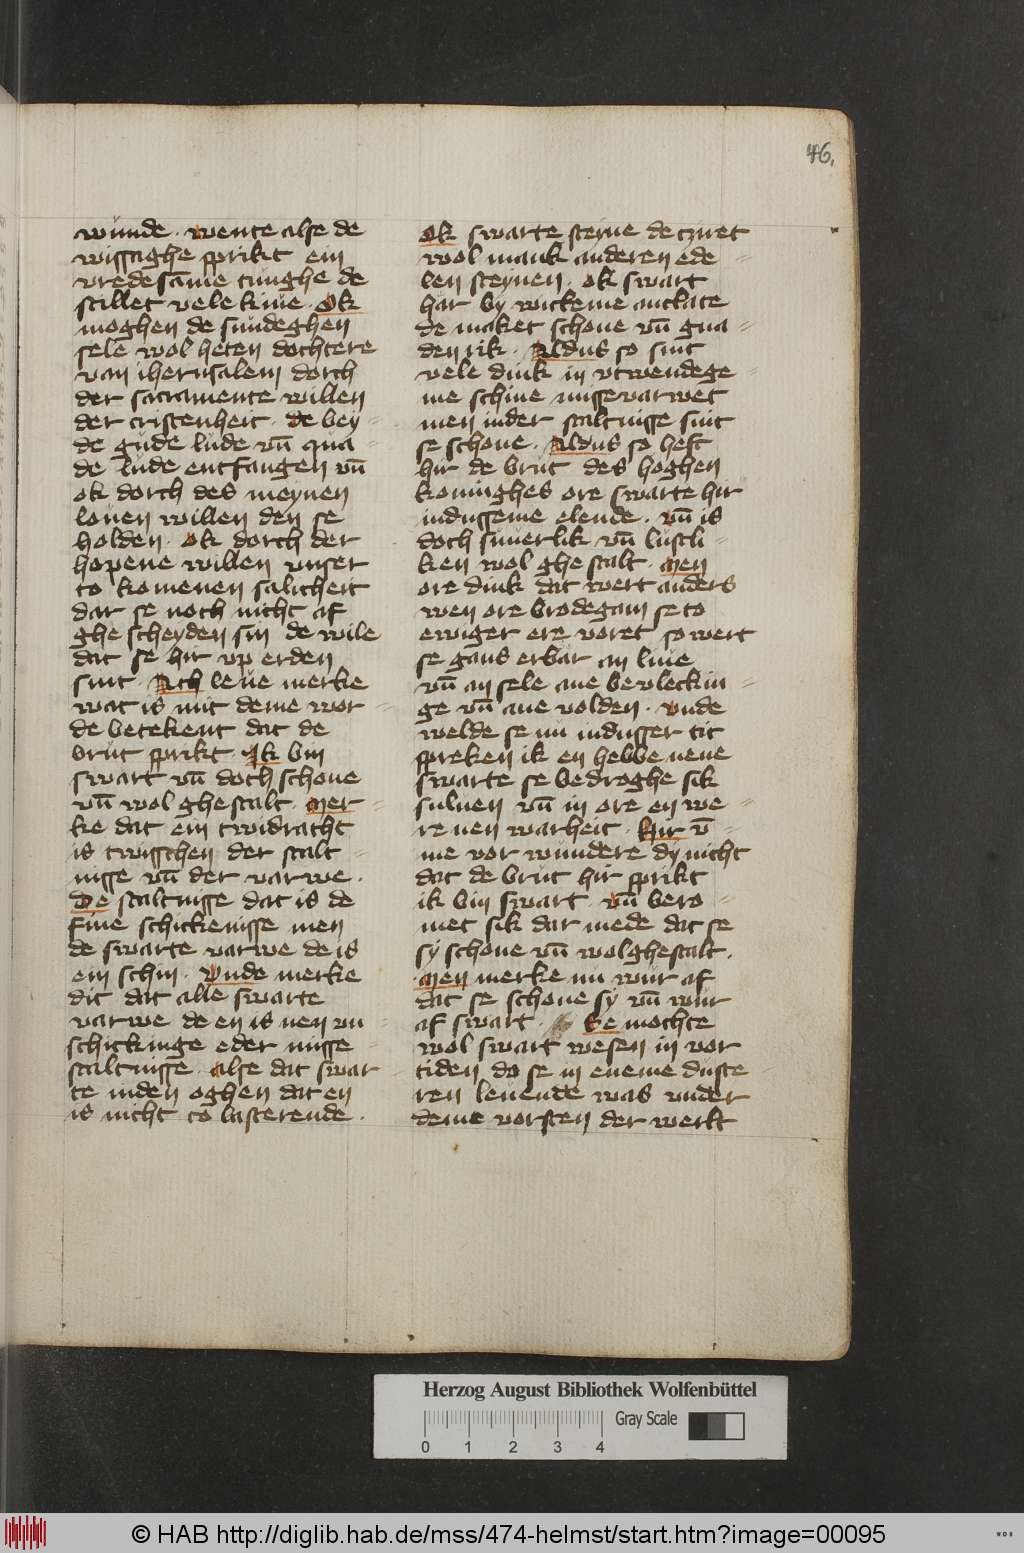 46.
wunde · wente alse de
wissaghe sprikt ein
vredesame tunghe de
stillet vele kiue · Ok
moghen de sundeghen
sele wol heten dochtere
van iherusalem dorch
der sacramente willen
der cristenheit · de bey-
de gude lude vn̄ qua-
de lude entfangen vn̄
ok dorch des meynen
louen willen den se
holden · ok dorch der
hopene willen vnser
to komenen salicheit
dar se noch nicht af
ghe scheyden sin de wile
dat se hir vp erden
sint · Ach leue merke
wat is mit deme wor-
de betekent dat de
brut sprikt Ik bin
swart vn̄ doch schone
vn̄ wol ghestalt · Mer-
ke dat ein twidracht
is twisschen der stalt-
nisse vn̄ der varwe ·
De staltnisse dat is de
fine schickenisse men
de swarte varwe de is
ein schin · Vnde merke
dit dat alle swarte
varwe de en is nen vn-
schickinge eder misse-
staltnisse · alse dat swar-
te inden oghen dat en
is nicht to lasterende ·
Ok swarte steyne de tziret
wol mank anderen ede-
len steynen · ok swart
har by wickeme antlate
de maket schone vn̄ gna-
den rik · Aldus so sint
vele dink in vtwendege-
me schine missevarwet
men inder staltnisse sint
se schone · Aldus so heft
hir de brut des hoghen
koninghes ore swarte hir
indusseme elende · vn̄ is
doch suuerlik vn̄ lustli-
ken wol ghe stalt · Men
ore dink dat wert anders
wen ore brodegam se to
ewiger ere voret so wert
se gans erbar an liue
vn̄ an sele ane bevleckin-
ge vn̄ ane volden · vnde
welde se nu indusser tit
spreken ik en hebbe nene
swarte se bedroghe sik
suluen vn̄ in ore en we-
re nen warheit · Hir v̄-
me vor wundere dy nicht
dat de brut hir sprikt
ik bin swart · vn̄ bero-
met sik dar mede dat se
sy schone vn̄ wolghestalt ·
Men merke nu wur af
dat se schone sy vn̄ wur
af swart · Se mochte
wol swart wesen in vor
tiden do se in eneme duste-
ren leuende was vnder
deme vorsten der werlt
Herzog August Bibliothek Wolfenbüttel
Gray Scale
0 1 2 3 4
© HAB http://diglib.hab.de/mss/474-helmst/start.htm?image=00095